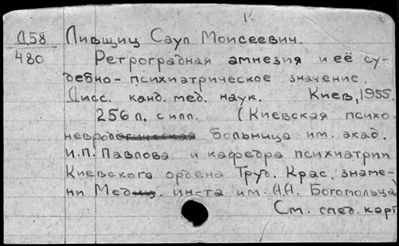 Д58 Лившиц Саул Моисеевич.
480 Ретроградная амнезия и её су-
дебно-психиатрическое значение.
Дисс. канд. мед. наук. Киев, 1955.
256 л. с илл. (Киевская психо-
неврологическая больница им. акад.
И.П. Павлова и кафедра психиатрии
Киевского ордена Труд. Крас. знаме-
ни Мед. ин-та им. А.А. Богомольца
См. след. карт